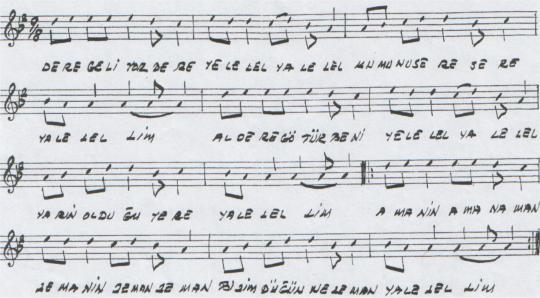 9/8
DE RE GE Lİ YOR DE RE YE LE LEL YA LE LEL KU MU NU SE RE SE RE
YA LE LEL LİM AL DE RE GÖ TÜR BE Nİ YE LE LEL YA LE LEL
YA RİN OL DU ĞU YE RE YA LE LEL LİM A MA NİN A MA NA MAN
ZE MA NİN ZE MAN ZE MAN Bİ ZİM DÜ ĞÜN NE ZE MAN YA LE LEL LİM